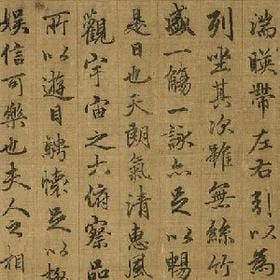 湍暎帶左右引以為
列坐其次雖無絲竹
盛一觴一詠亦足以暢
是日也天朗氣清惠風
觀宇宙之大俯察品
所以遊目騁懷足以極
娛信可樂也夫人之相